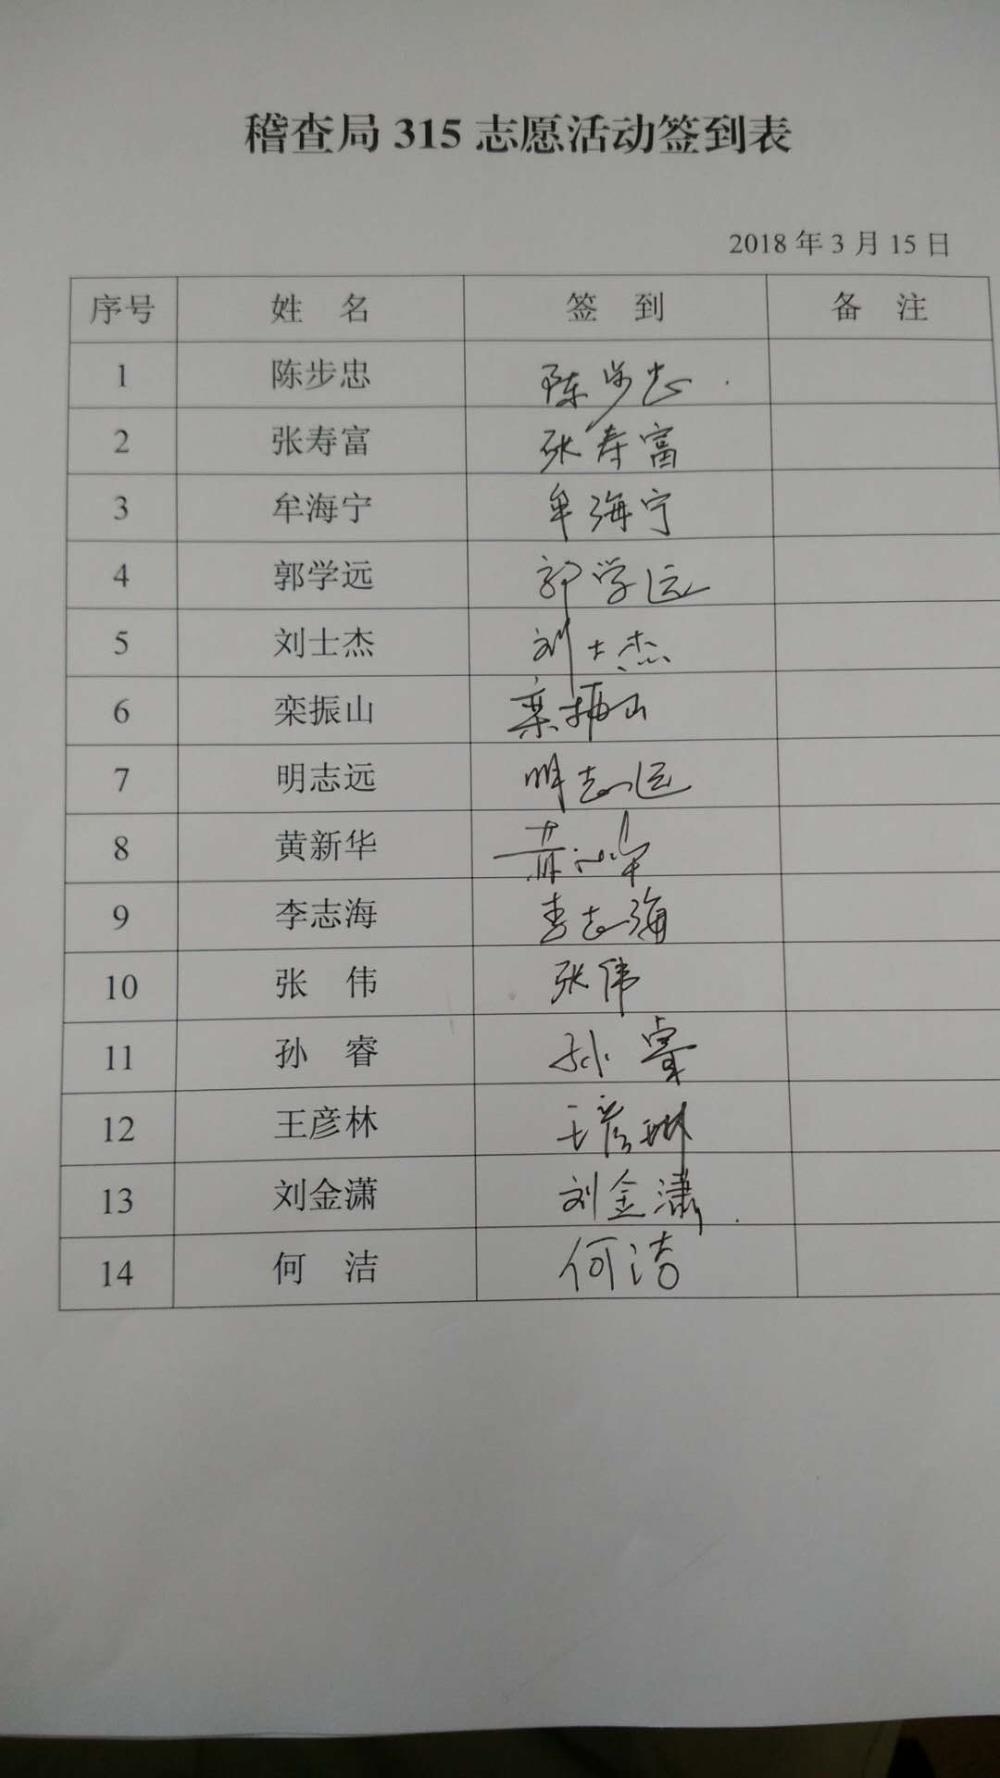 稽查局315志愿活动签到表
2018年3月15日
序号 姓 名 签 到 备 注
1 陈步忠 陈步忠
2 张寿富 张寿富
3 牟海宁 牟海宁
4 郭学远 郭学远
5 刘士杰 刘士杰
6 栾振山 栾振山
7 明志远 明志远
8 黄新华 黄新华
9 李志海 李志海
10 张 伟 张伟
11 孙 睿 孙睿
12 王彦林 王彦琳
13 刘金潇 刘金潇
14 何 洁 何洁